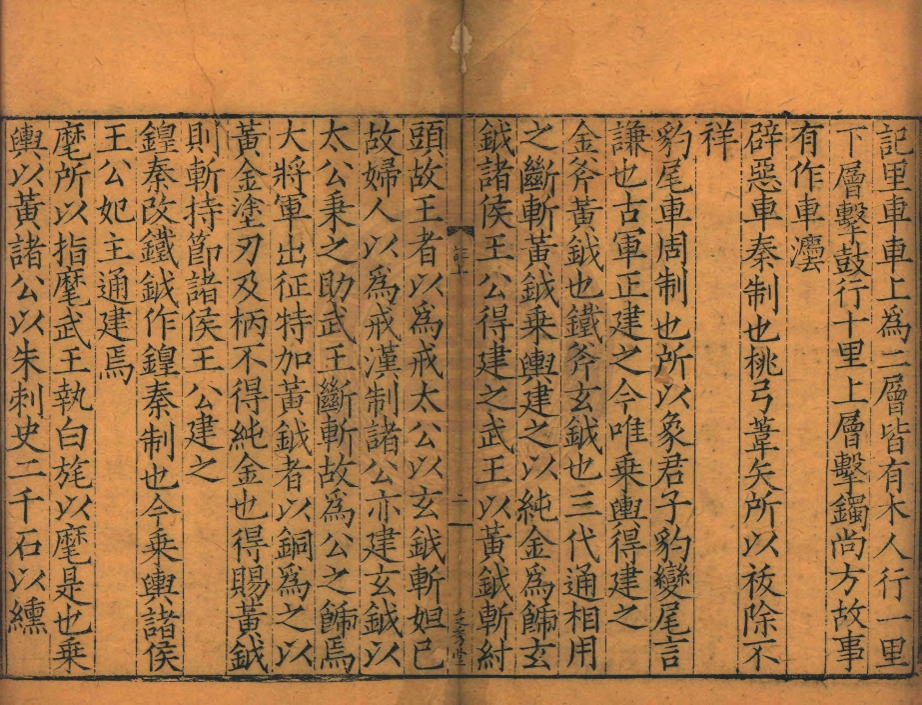 記里車車上爲二層皆有木人行一里
下層擊鼓行十里上層擊鐲尚方故事
有作車灋
辟惡車秦制也桃弓葦矢所以祓除不
祥
豹尾車周制也所以象君子豹變尾言
謙也古軍正建之今唯乗輿得建之
金斧黃鉞也鐵斧玄鉞也三代通相用
之斷斬黃鉞乗輿建之以純金爲餙玄
鉞諸侯王公得建之武王以黃鉞斬紂
頭故王者以爲戒太公以玄鉞斬妲已
故婦人以爲戒漢制諸公亦建玄鉞以
太公秉之助武王斷斬故爲公之餙焉
大將軍出征特加黃鉞者以銅爲之以
黃金塗刃及柄不得純金也得賜黃鉞
則斬持節諸侯王公建之
鍠秦改鐵鉞作鍠秦制也今乗輿諸侯
王公妃主通建焉
麾所以指麾武王執白旄以麾是也乗
輿以黃諸公以朱刺史二千石以纁